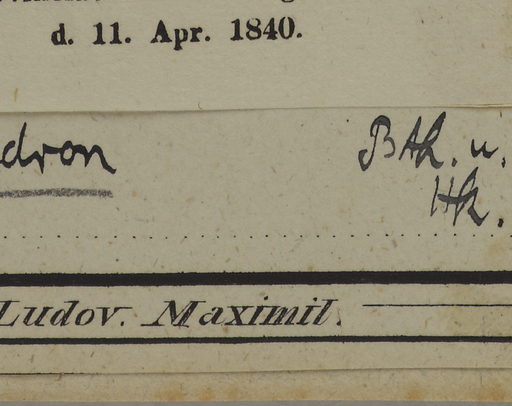 d. 11. Apr. 1840.
dron Bth. u.
Hk.
Ludov. Maximil.